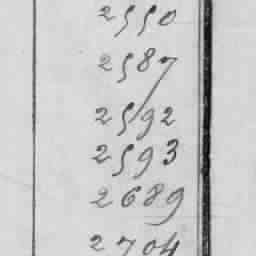 2550
2587
2592
2593
2689
2704